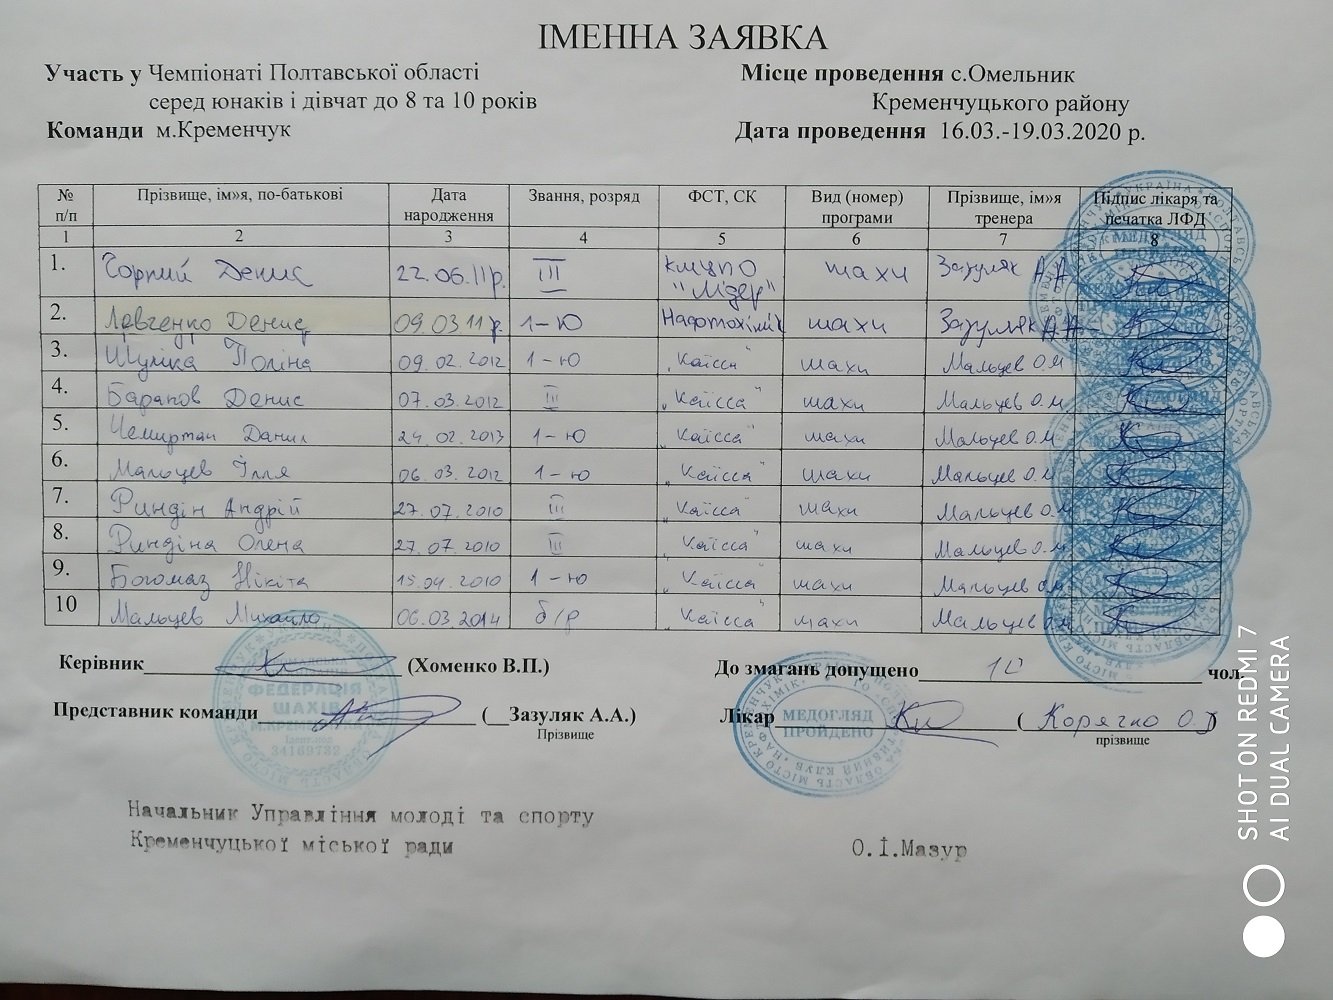 ІМЕННА ЗАЯВКА
Участь у Чемпіонаті Полтавської області
серед юнаків і дівчат до 8 та 10 років
Команди м.Кременчук
Місце проведення с.Омельник
Кременчуцького району
Дата проведення 16.03.-19.03.2020 р.
№ п/п Прізвище, ім»я, по-батькові Дата народження Звання, розряд ФСТ, СК Вид (номер) програми Прізвище, ім»я тренера Підпис лікаря та печатка ЛФД
1 2 3 4 5 6 7 8
1. Денис 22.06.11р. III КМЦПО "Лідер" шахи Зазуляк А.А
2. Левченко Денис 09.03 11 р. 1-Ю Нафтохімік шахи Зазуляк А.А
3. Шуліка Поліна 09.02.2012 1-Ю "Каїсса" шахи Мальцев О.М
4. Баранов Денис 07.03.2012 III "Каїсса" шахи Мальцев О.М
5. Данил 24.02.2013 1-Ю "Каїсса" шахи Мальцев О.М
6. Мальцев Ілля 06.03.2012 1-Ю "Каїсса" шахи Мальцев О.М
7. Риндін Андрій 27.07.2010 III "Каїсса" шахи Мальцев О.М
8. Риндіна Олена 27.07.2010 III "Каїсса" шахи Мальцев О.М
9. Богомаз Нікіта 15.04.2010 1-Ю "Каїсса" шахи Мальцев О.М
10 Мальцев Михайло 06.03.2014 б/р "Каїсса" шахи Мальцев О.М
Керівник (Хоменко В.П.)
До змагань допущено 10 чол.
Представник команди (__Зазуляк А.А.)
Прізвище
Лікар ( )
прізвище
ФЕДЕРАЦІЯ
ШАХІВ
М.КРЕМЕНЧУКА
34169782
МЕДОГЛЯД
ПРОЙДЕНО
Начальник Управління молоді та спорту
Кременчуцької міської ради
О.І.Мазур
SHOT ON REDMI 7
AI DUAL CAMERA